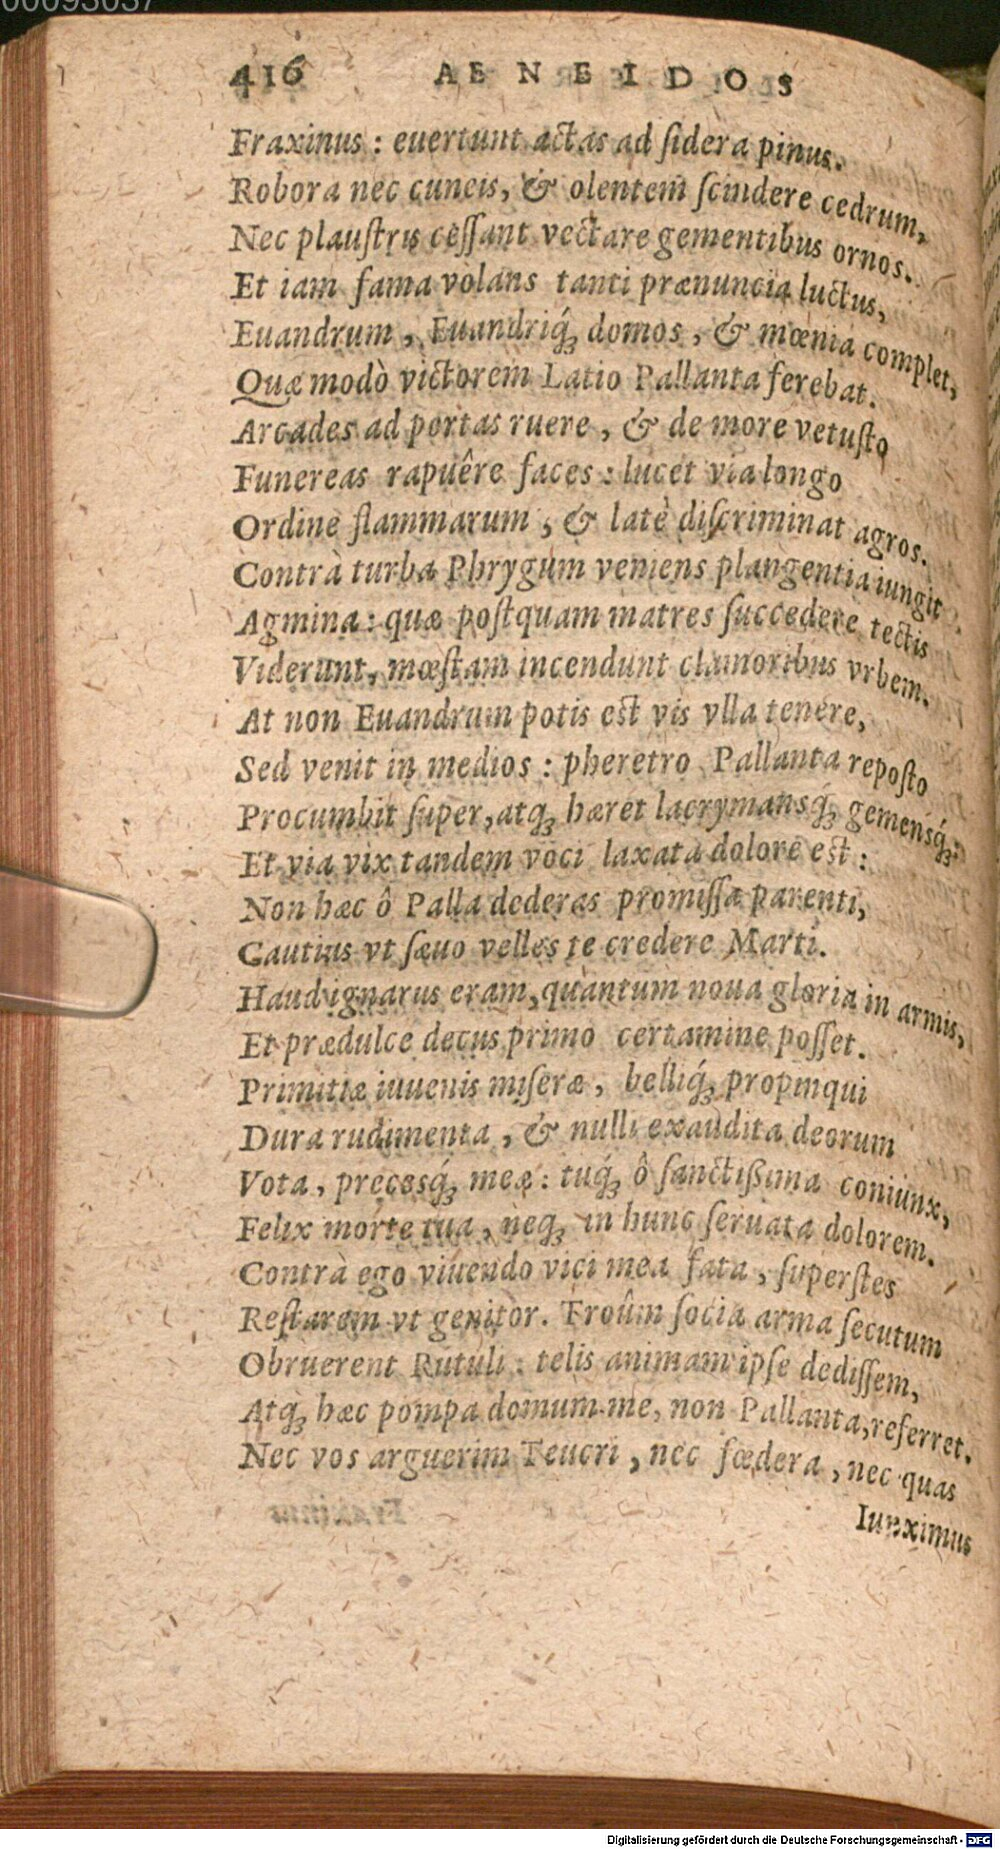 00093037
416 AENEIDOS
Fraxinus : euertunt actas ad ſidera pinus.
Robora nec cuneis, & olentem ſcindere cedrum,
Nec plauſtris ceſſant vectare gementibus ornos.
Et iam fama volans tanti prænuncia luctus,
Euandrum, Euandriq́; domos, & mœnia complet,
Quæ modò victorem Latio Pallanta ferebat.
Arcades ad portas ruere, & de more vetuſto
Funereas rapuêre faces : lucet via longo
Ordine flammarum, & latè diſcriminat agros.
Contrà turba Phrygum veniens plangentia iungit
Agmina : quæ poſtquam matres ſuccedere tectis
Viderunt, mœſtam incendunt clamoribus vrbem.
At non Euandrum potis est vis vlla tenere,
Sed venit in medios : pheretro Pallanta repoſto
Procumbit ſuper, atq; hæret lacrymansq́; gemensq́;:
Et via vix tandem voci laxata dolore est :
Non hæc ô Palla dederas promiſſa parenti,
Cautius vt ſæuo velles te credere Marti.
Haud ignarus eram, quantum noua gloria in armis,
Et prædulce decus primo certamine poſſet.
Primitiæ iuuenis miſeræ, belliq́; propinqui
Dura rudimenta, & nulli exaudita deorum
Vota, precesq́; meæ : tuq́; ô ſanctißima coniunx,
Felix morte tua, neq; in hunc ſeruata dolorem.
Contrà ego viuendo vici mea fata, ſuperſtes
Reſtarem vt genitor. Troûm ſocia arma ſecutum
Obruerent Rutuli : telis animam ipſe dediſſem,
Atq; hæc pompa domum me, non Pallanta, referret.
Nec vos arguerim Teucri, nec fœdera, nec quas
Iunximus
Digitalisierung gefördert durch die Deutsche Forschungsgemeinschaft - DFG